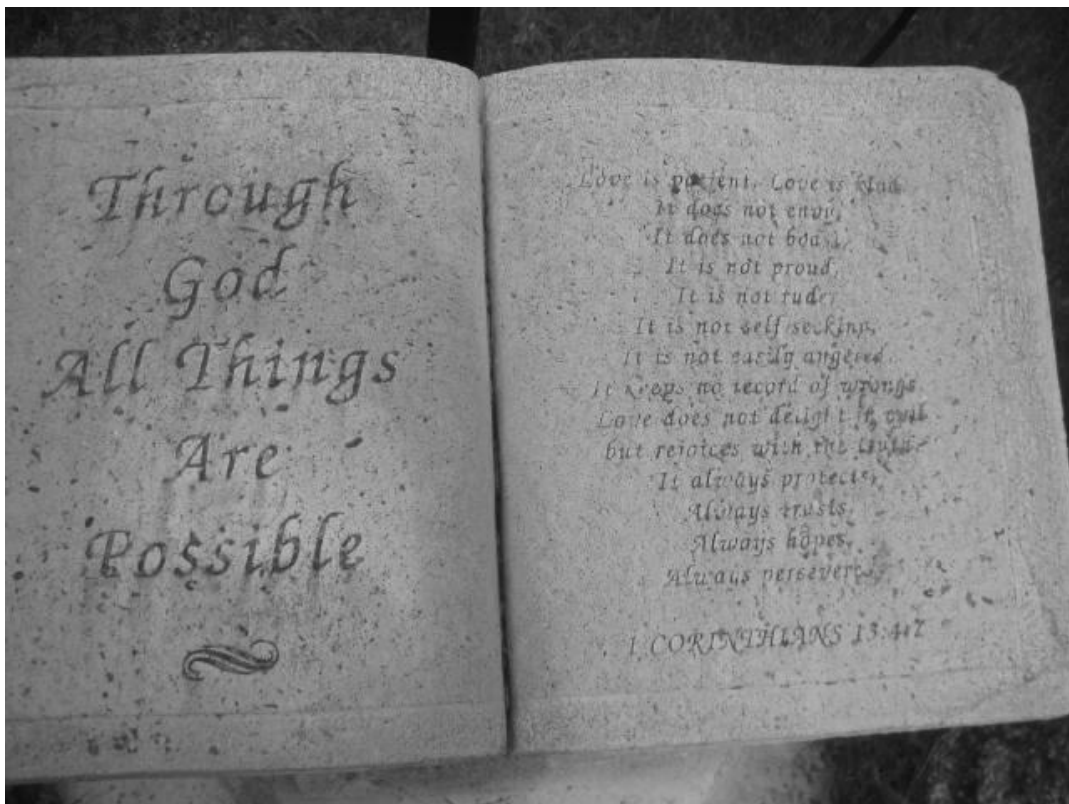 Through
God
All Things
Are
Possible
Love is patient. Love is kind.
It does not envy,
It does not boast,
It is not proud,
It is not rude,
It is not self seeking,
It is not easily angered
It keeps no record of wrongs
Love does not delight in evil
but rejoices with the truth
It always protects,
Always trusts,
Always hopes,
Always perseveres
1 CORINTHIANS 13:4-7